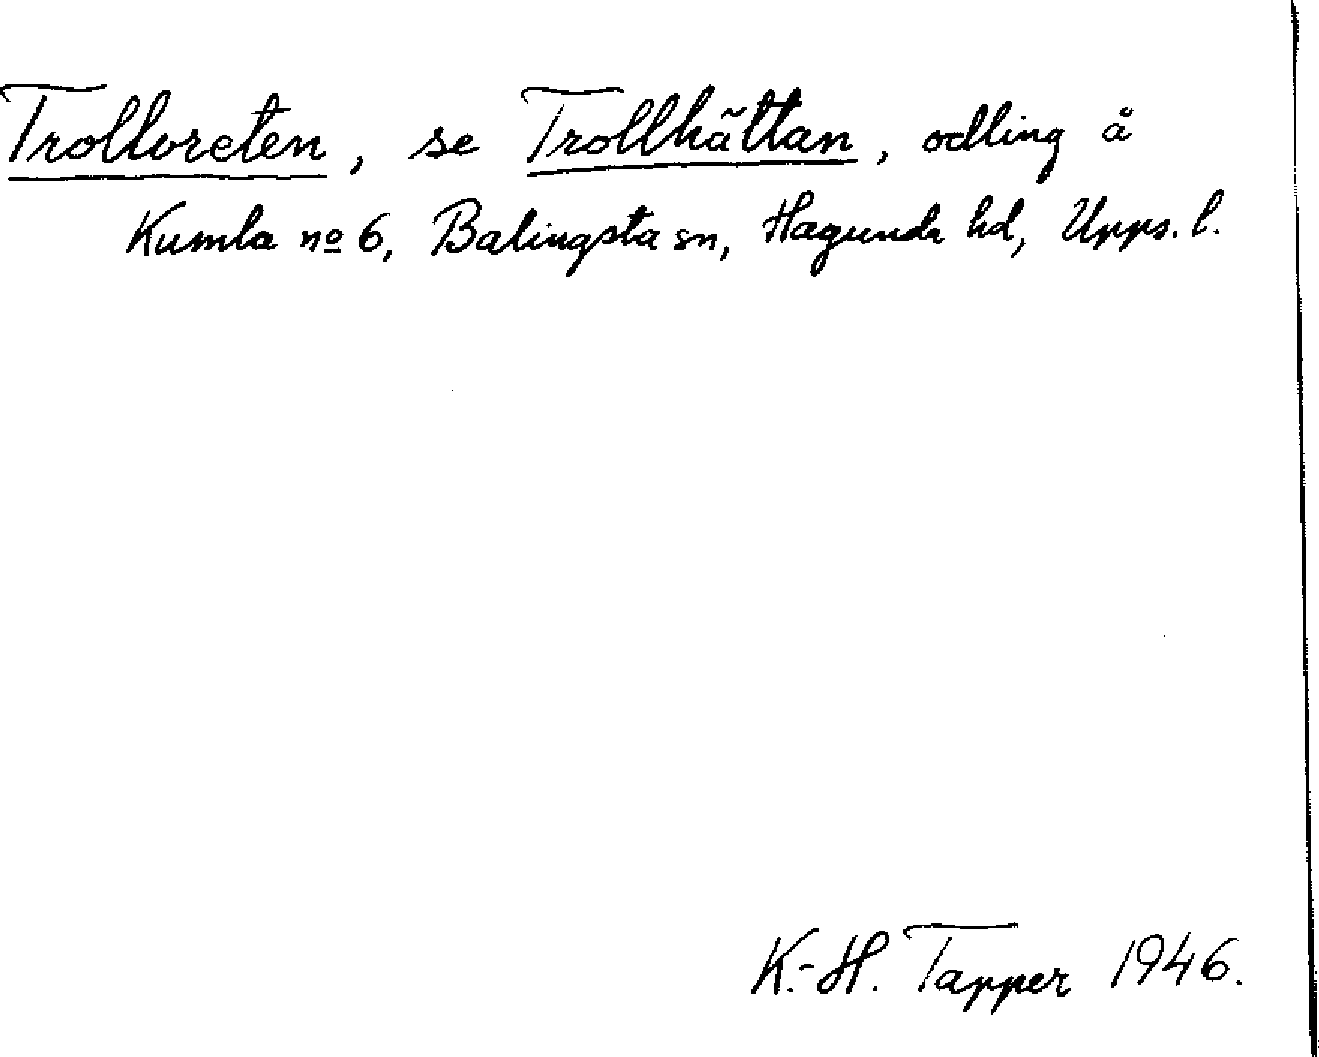 Trollvreten, se Trollhättan, odling å
Kumla no 6, Balingsta sn, Hagunda hd, Upps. l.
K.-H. Tapper 1946.